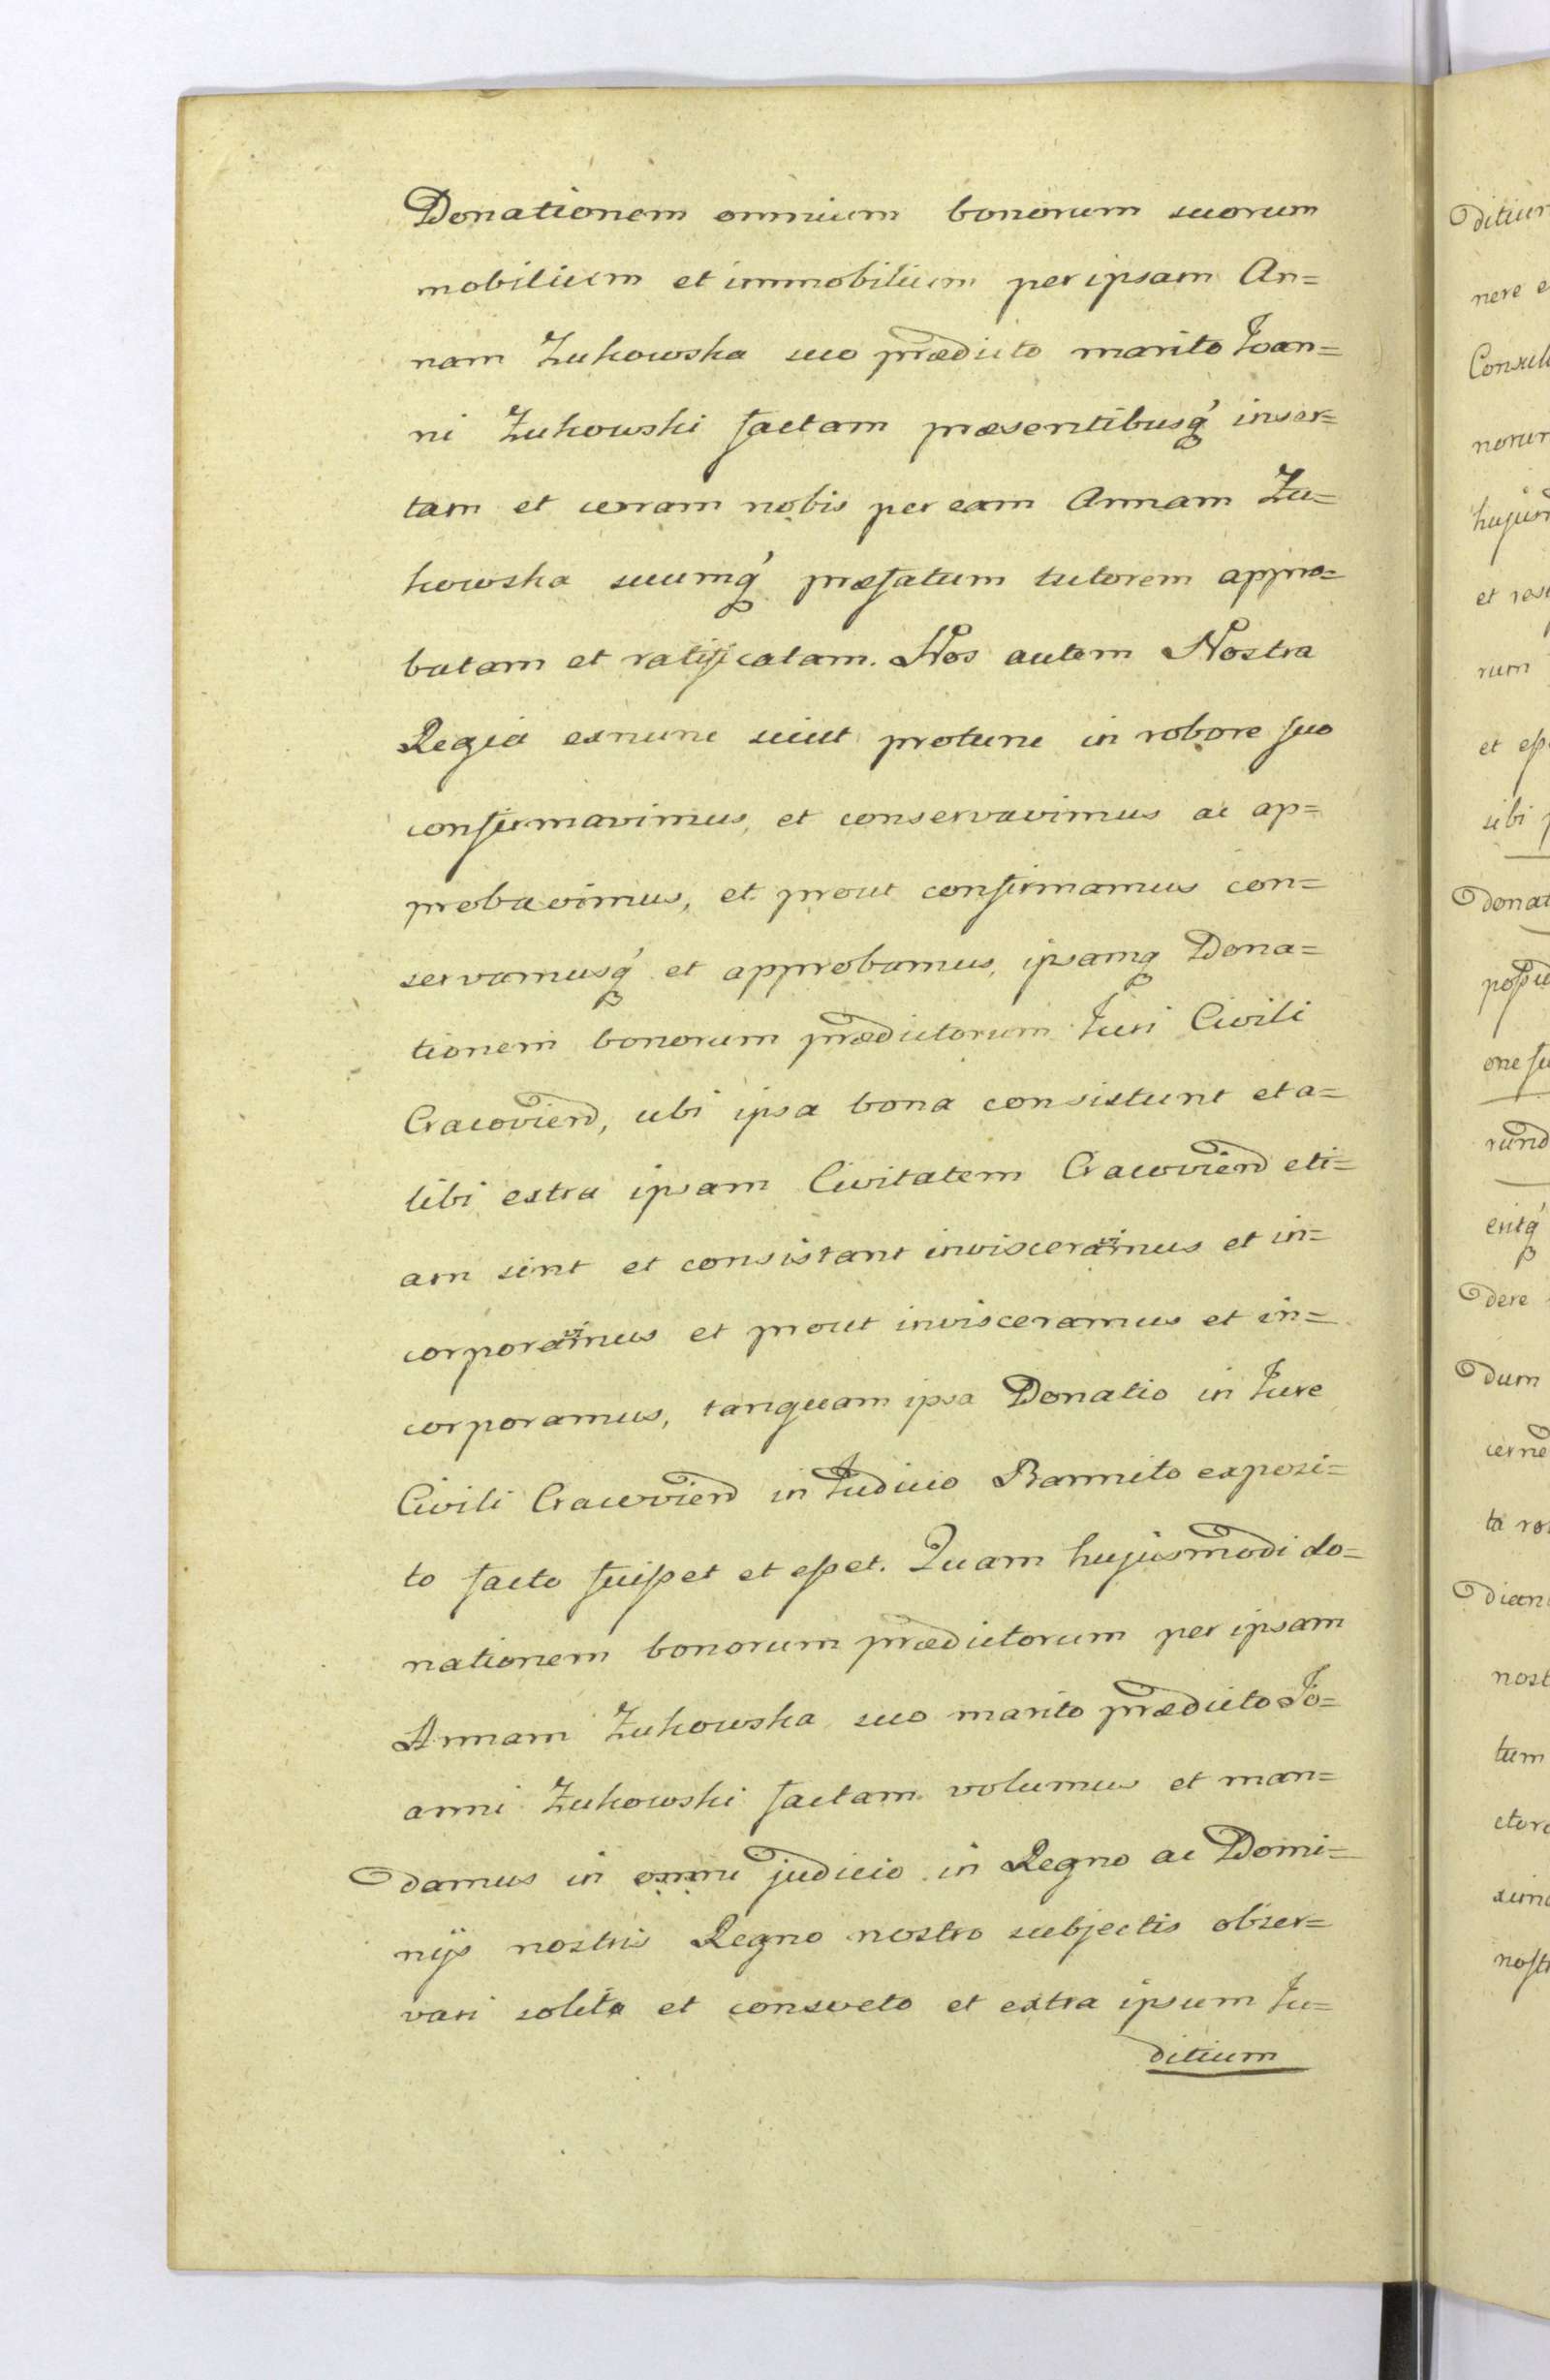 Donationem omnium bonorum suorum
mobilium et immobilium per ipsam An=
nam Zukowska suo prædicto marito Joan=
ni Zukowski factam præsentibusq́ inser=
tam et coram nobis per eam Annam Zu=
kowska suumq́ præfatum tutorem appro=
batam et ratificatam. Nos autem Nostra
Regia exnunc sicut protunc in robore suo
confirmavimus, et conservavimus ac ap=
probavimus, et prout confirmamus con=
servamusq́ et approbamus, ipsamq Dona=
tionem bonorum prædictorum Juri Civili
Cracovień, ubi ipsa bona consistunt et a=
libi extra ipsam Civitatem Cracovień eti=
am sint et consistant invisceravimus et in=
corporavimus et prout invisceramus et in=
corporamus, tanquam ipsa Donatio in Jure
Civili Cracovień in Judicio Bannito exposi=
to facto fuisset et esset. Quam hujusmodi do=
nationem bonorum prædictorum per ipsam
Annam Zukowska suo marito prædicto Jo=
anni Zukowski factam volumus et man=
damus in omni judicio in Regno ac Domi=
nijs nostris Regno nostro subjectis obser=
vari solito et consveto et extra ipsum Ju=
ditium
ditium
nere
Consul
norum
et
rum
et
sibi
donat
dere
dum
nost
tum